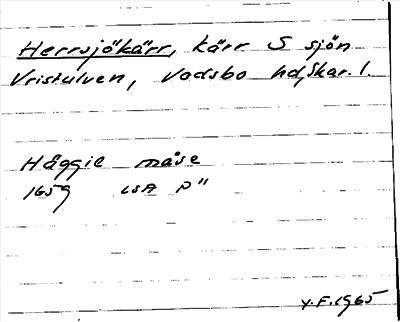 Herrsjökärr, kärr S sjön
Vristulven, Vadsbo hd, Skar. l.
Häggie måse
1659 LSA P"
Y.F. 1965